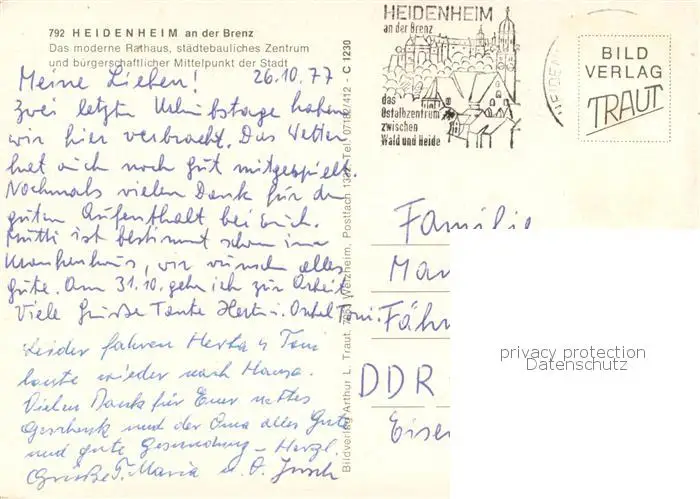 792 HEIDENHEIM an der Brenz
Das moderne Rathaus, städtebauliches Zentrum
und bürgerschaftlicher Mittelpunkt der Stadt
Meine Lieben! 26.10.77
Zwei letzte Urlaubstage haben
wir hier verbracht. Das Wetter
hat auch noch gut mitgespielt.
Nochmals vielen Dank für den
guten Aufenthalt bei Euch.
Mutti ist bestimmt schon im
Krankenhaus, wir wünschen alles
Gute. Am 31.10. geh ich zur Arbeit
Viele Grüße Tante Herta u. Onkel Toni.
Leider fahren Herta u Toni
heute wieder nach Hause.
Vielen Dank für Euer nettes
Geschenk und der Oma alles Gute
und gute Gesundung – Herzl.
Grüße T. Maria u. O.
Bildverlag Arthur L. Traut, Welzheim, Postfach 1322, Tel. 07182/412 - C 1230
HEIDENHEIM
an der Brenz
das
Ostalbzentrum
zwischen
Wald und Heide
BILD
VERLAG
TRAUT
Familie
Man
Fäh
DDR
Eise
privacy protection
Datenschutz